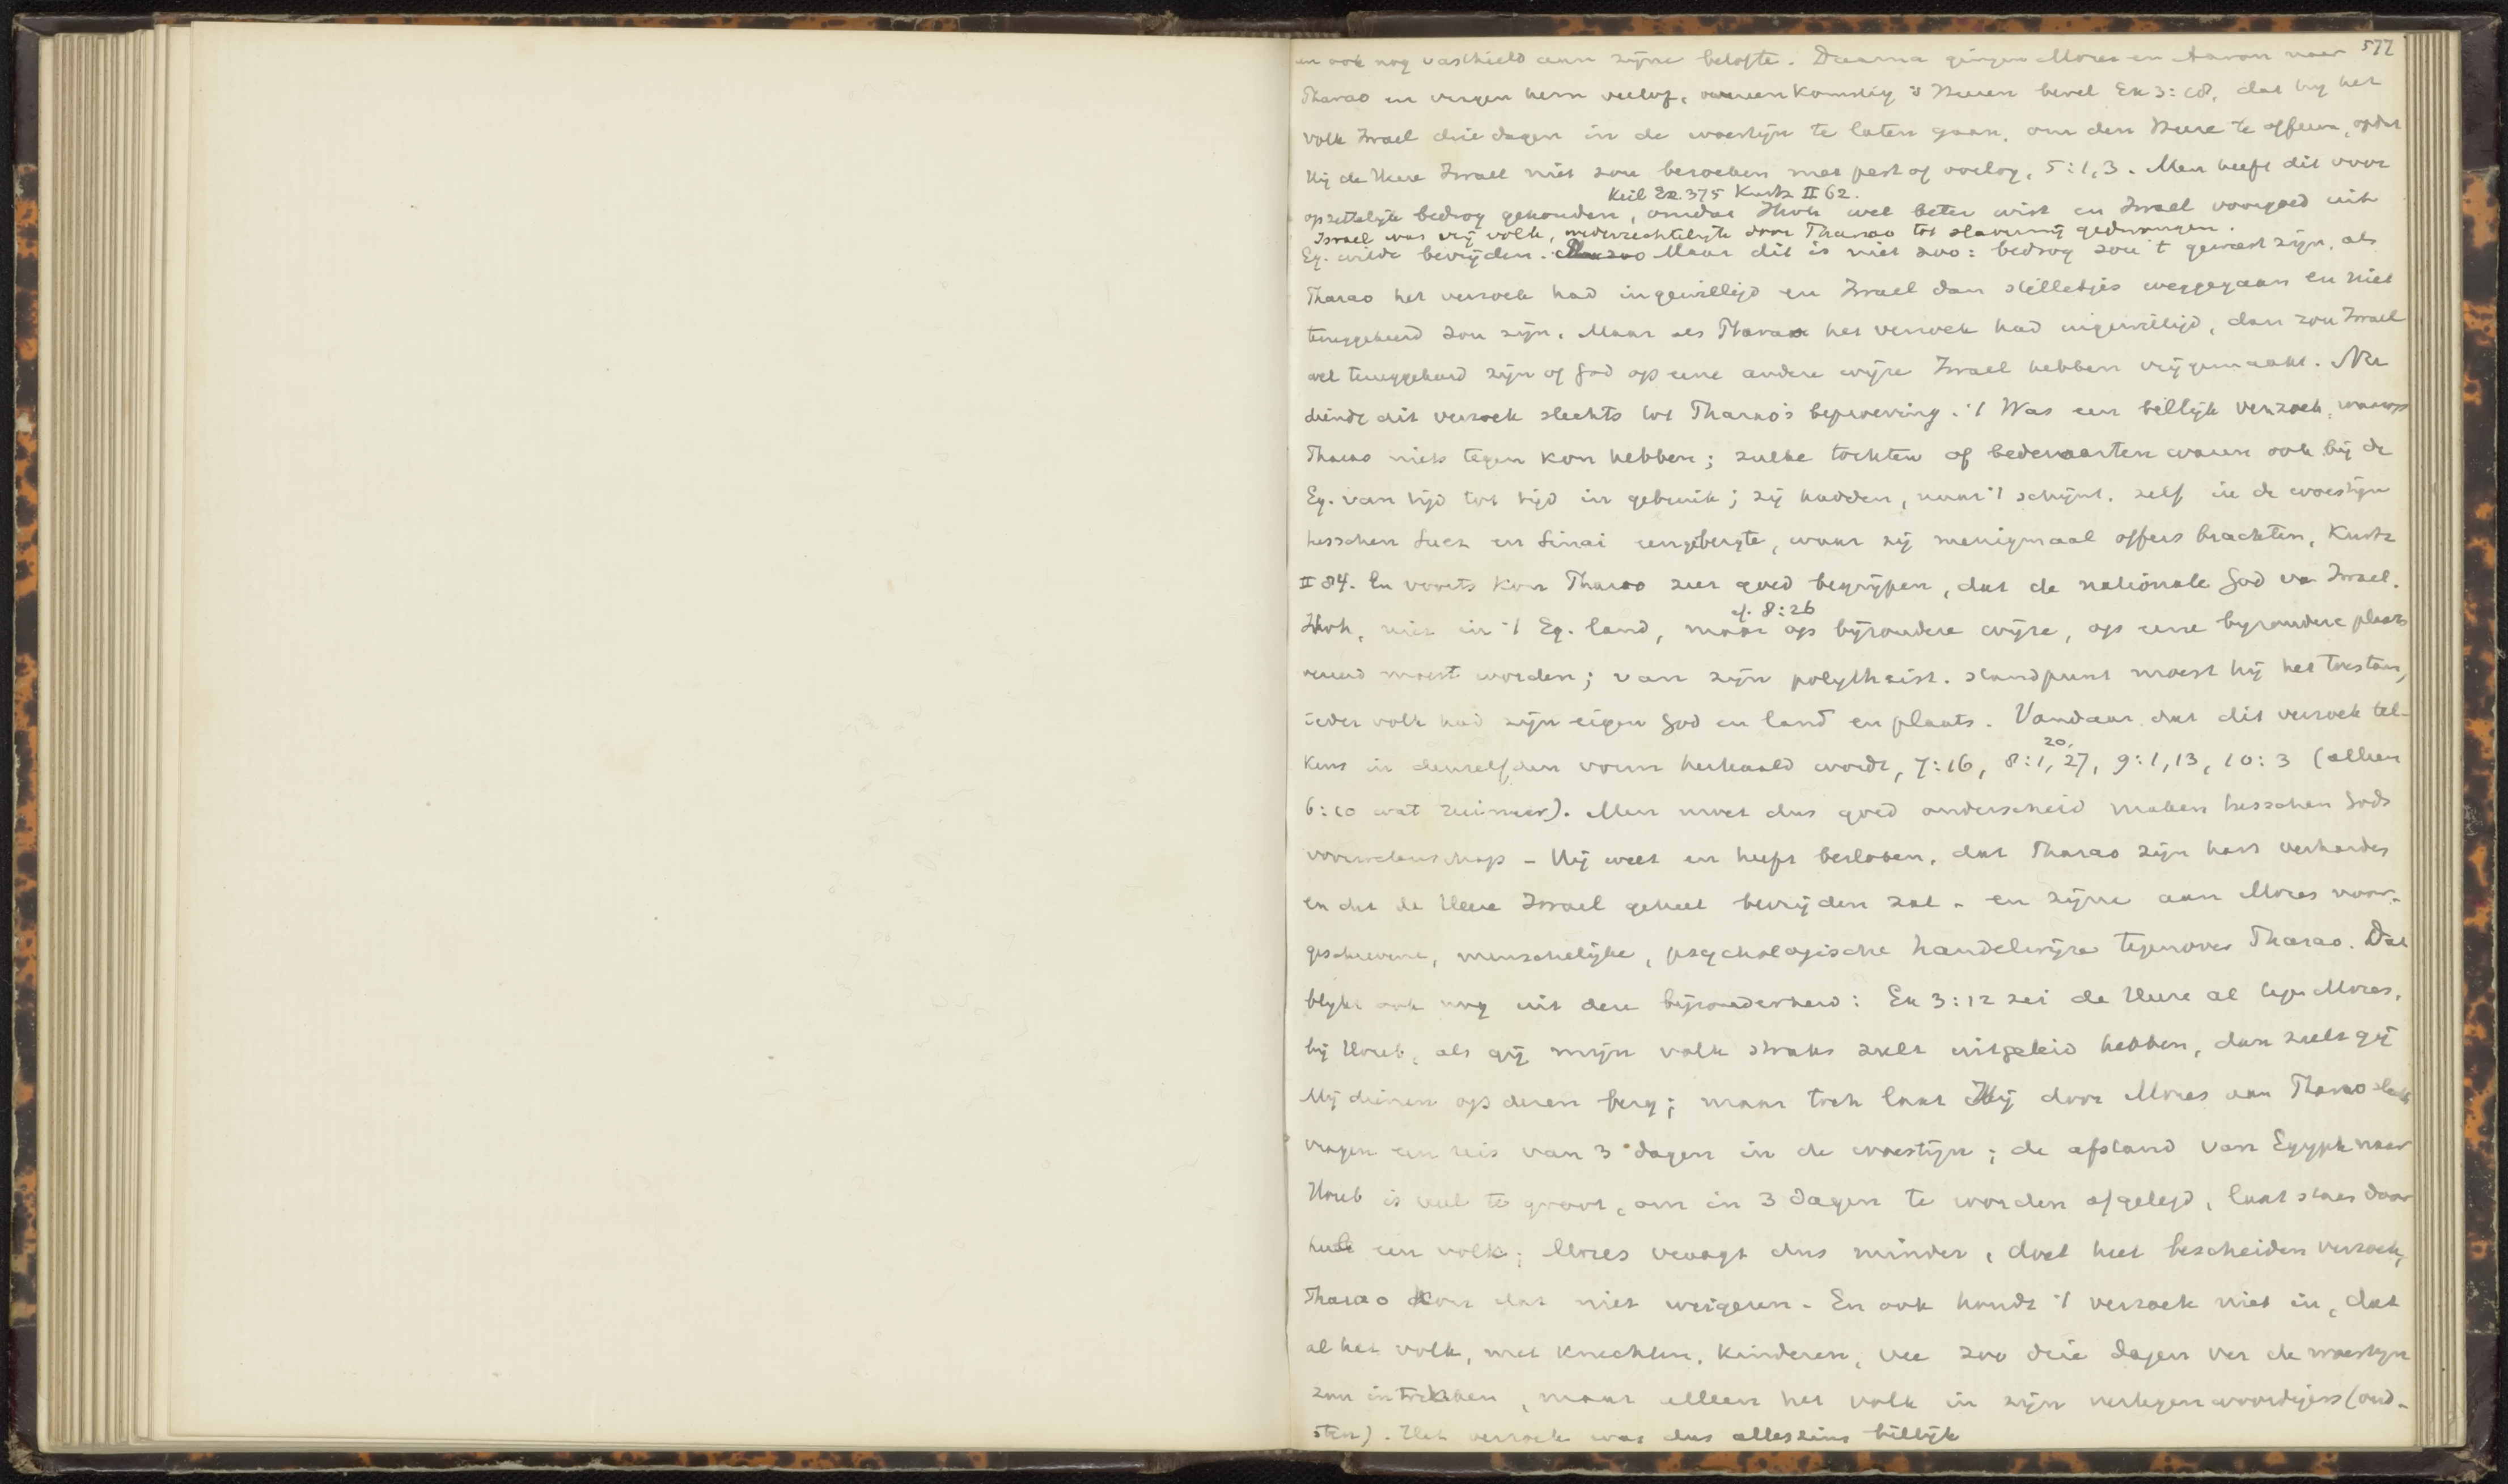 577
en ook nog vasthield aan zijne belofte. Daarna gingen Mozes en Aaron naar
Pharao en vragen hem verlof, overeenkomstig 's Heeren bevel Ex 3:18, dat hij het
volk Israel drie dagen in de woestijn te laten gaan, om den Heere te offeren, opdat
Hij de Heere Israel niet zou bezoeken met pest of oorlog, 5:1,3. Men heeft dit voor
Keil Ex. 375 Kurtz II 62.
opzettelijk bedrog gehouden, omdat Jhvh wel beter wist en Israel voorgoed uit
Israel was vrij volk, wederrechtelijk door Pharao tot slavernij gedwongen.
Eg. wilde bevrijden. Maar dit is niet zoo: bedrog zou 't geweest zijn, als
Pharao het verzoek had ingewilligd en Israel dan stilletjes weggegaan en niet
teruggekeerd zou zijn. Maar als Pharao het verzoek had ingewilligd, dan zou Israel
wel teruggekeerd zijn of God op eene andere wijze Israel hebben vrijgemaakt. Nu
diende dit verzoek slechts tot Pharao's beproeving. 't Was een billijk verzoek, waarop
Pharao niets tegen kon hebben; zulke tochten of bedevaarten waren ook bij de
Eg. van tijd tot tijd in gebruik; zij hadden, naar 't schijnt, zelf in de woestijn
tusschen Suez en Sinai een gebergte, waar zij menigmaal offers brachten, Kurtz
II 84. En voorts kon Pharao zeer goed begrijpen, dat de nationale God van Israel.
cf. 8:26
Jhvh, niet in 't Eg. land, maar op bijzondere wijze, op eene bijzondere plaats
vereerd moest worden; van zijn polytheist. standpunt moest hij het toestaan,
ieder volk had zijn eigen God en land en plaats. Vandaar dat dit verzoek tel-
20,
kens in denzelfden vorm herhaald wordt, 7:16, 8:1, 27, 9:1,13, 10:3 (alleen
6:10 wat ruimer). Men moet dus goed onderscheid maken tusschen Gods
voorwetenschap - Hij weet en heeft besloten, dat Pharao zijn hart verhardt
en dat de Heere Israel geheel bevrijden zal - en zijne aan Mozes voor-
geschrevene, menschelijke, psychologische handelwijze tegenover Pharao. Dat
blijkt ook nog uit deze bijzonderheid: Ex 3:12 zei de Heere al tegen Mozes,
bij Horeb, als gij mijn volk straks zult uitgeleid hebben, dan zult gij
Mij dienen op dezen berg; maar toch laat Hij door Mozes aan Pharao slechts
vragen een reis van 3 dagen in de woestijn; de afstand van Egypte naar
Horeb is veel te groot, om in 3 dagen te worden afgelegd, laat staan door
heel een volk; Mozes vraagt dus minder, doet het bescheiden verzoek,
Pharao kon dat niet weigeren. En ook houdt 't verzoek niet in, dat
al het volk, met knechten, kinderen, vee zoo drie dagen ver de woestijn
zou intrekken, maar alleen het volk in zijn vertegenwoordigers (oud-
sten). Het verzoek was dus alleszins billijk